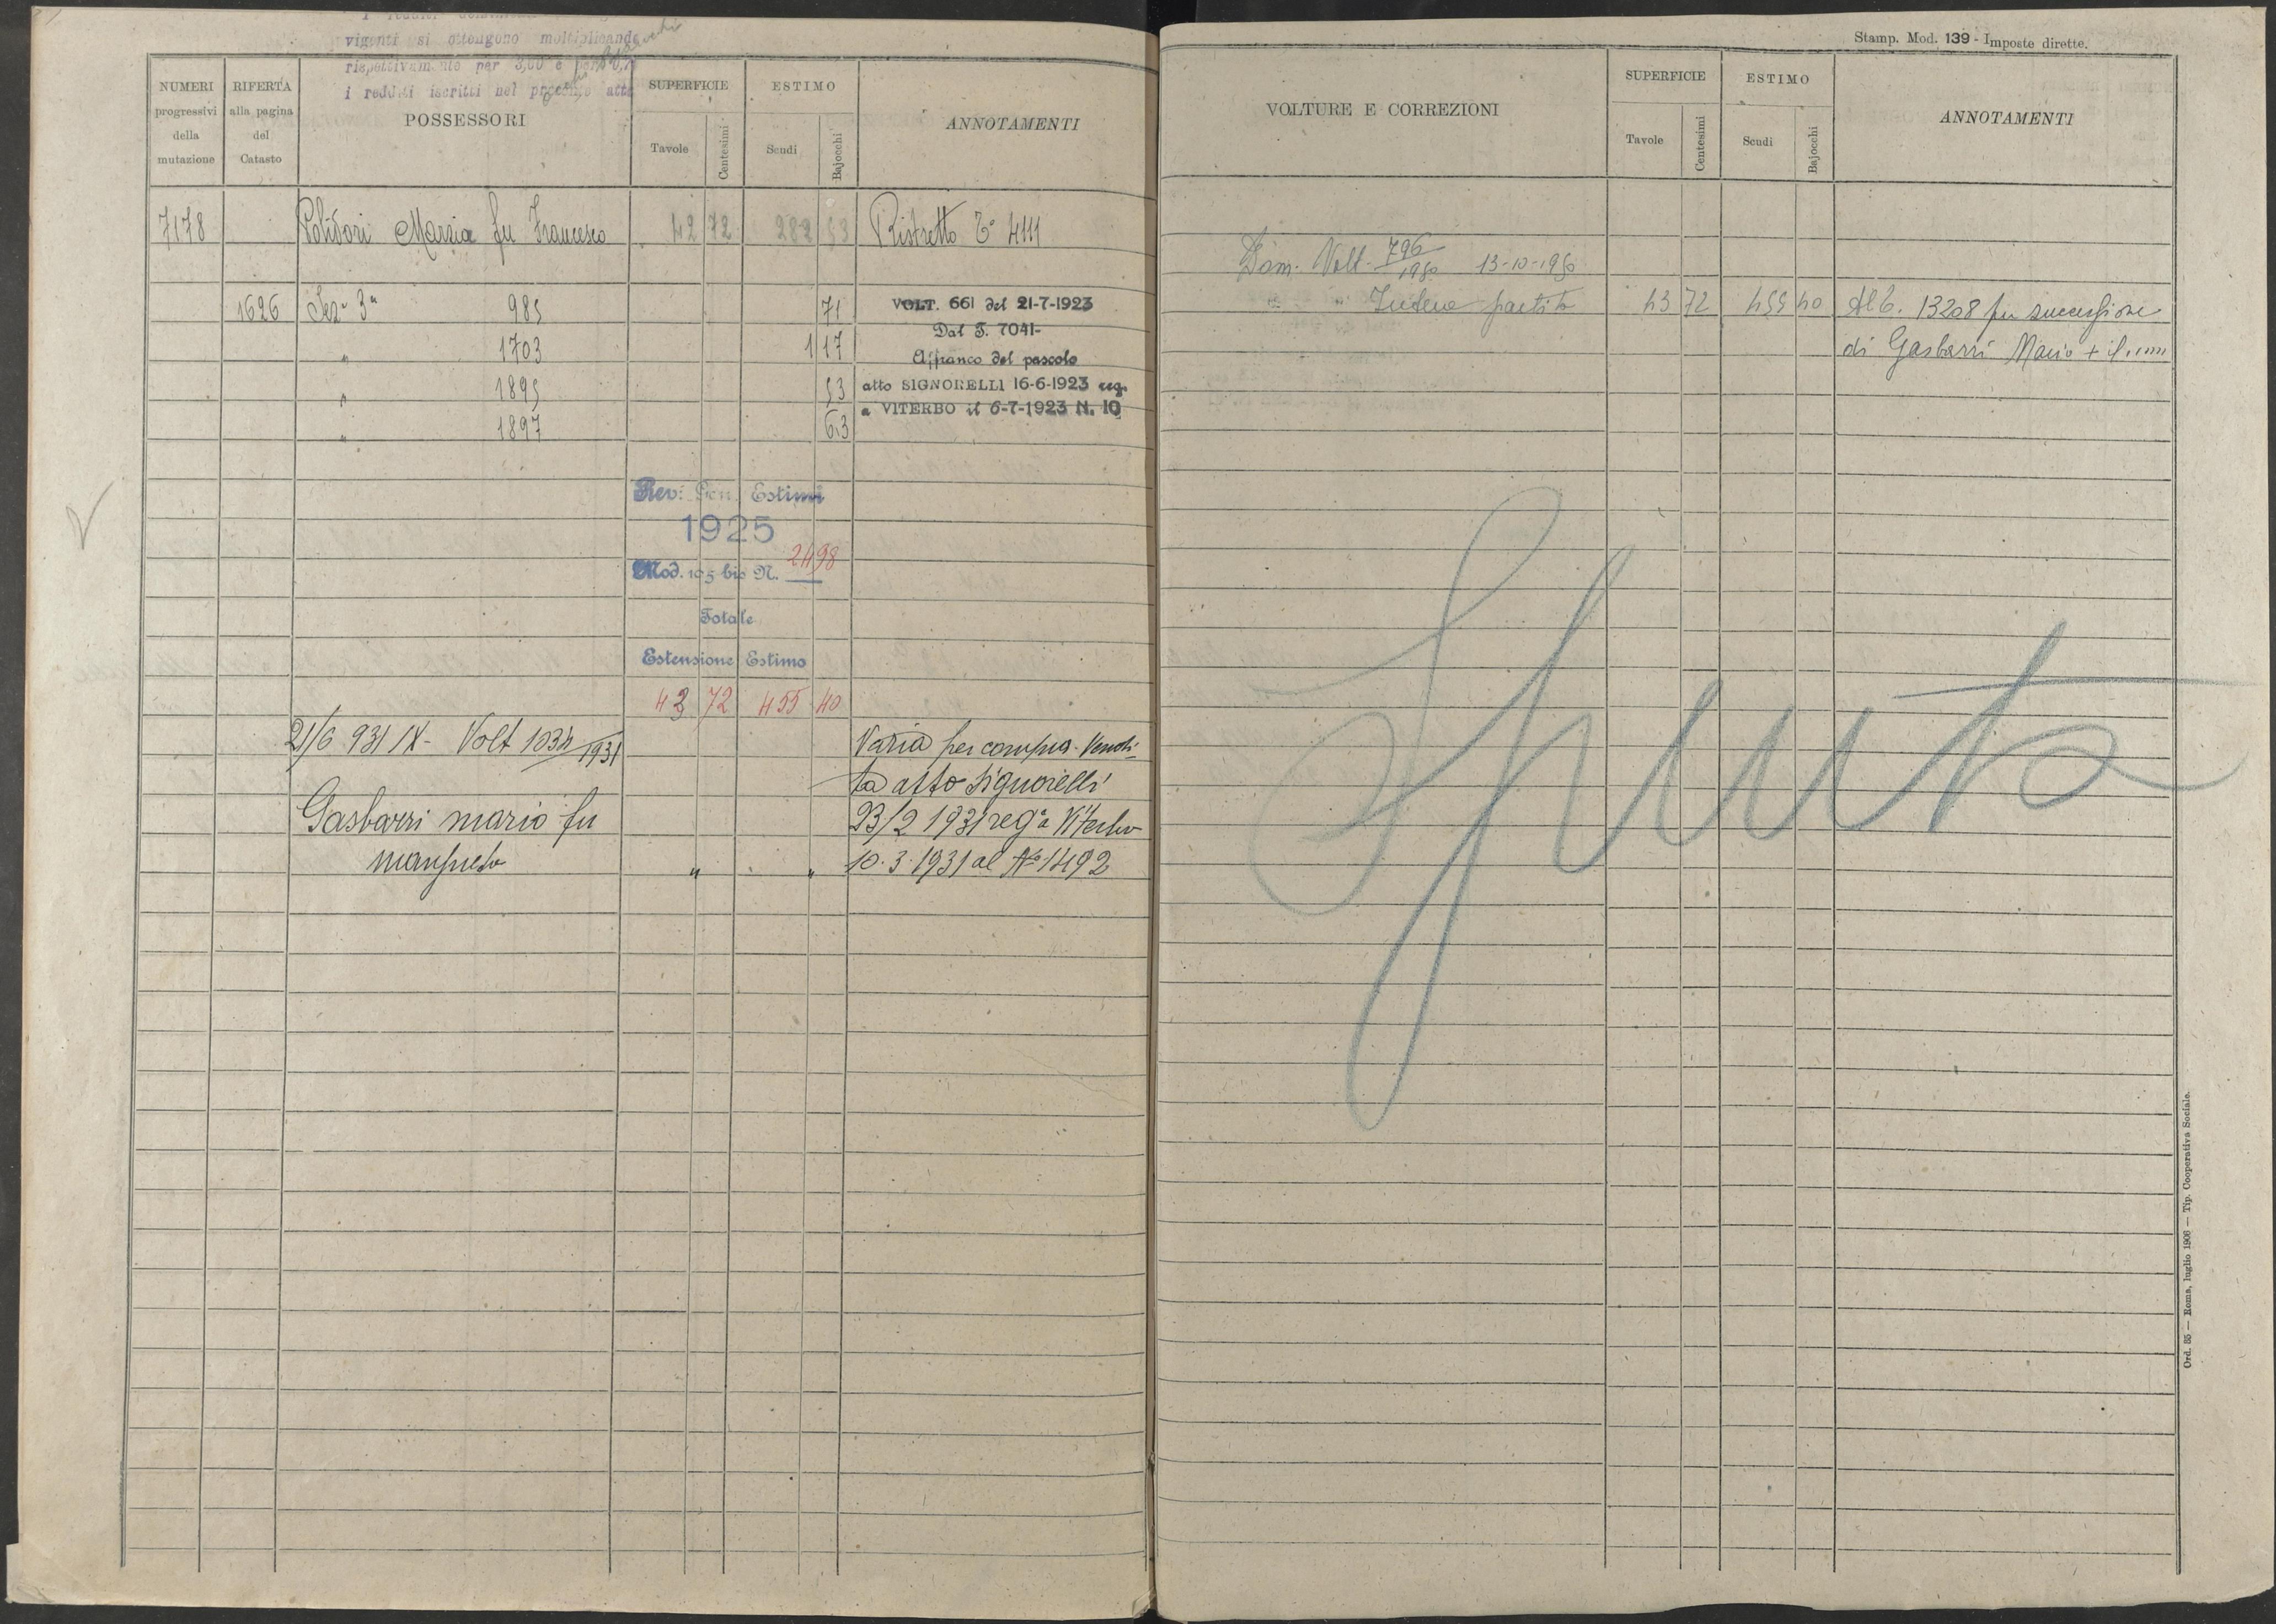 vigenti si ottengono moltiplicando
rispettivamente per 3,00 e per 0,7
i redditi iscritti nel presente atto
Stamp. Mod. 139 - Imposte dirette.
NUMERI progressivi della mutazione
RIFERTA alla pagina del Catasto
POSSESSORI
SUPERFICIE
Tavole
Centesimi
ESTIMO
Scudi
Bajocchi
ANNOTAMENTI
7178 Polidori Marzia fu Francesco 42 72 282 53 Ristretto T° 4111
1626 Sez. 3a 985 71 VOLT. 661 del 21-7-1923
Dal T. 7041-
" 1703 1 17 Affranco del pascolo
" 1895 53 atto SIGNORELLI 16-6-1923 reg.
a VITERBO il 6-7-1923 N. 10
" 1897 63
Rev: Gen. Estimi
1925
Mod. 105 bis N. 2498
Totale
Estensione Estimo
43 72 455 40
21/6 931 IX - Volt 1034/1931 Varia per compra-Vendi-
ta atto Signorelli
Gasbarri mario fu 23/2 1931 reg° a Viterbo
manfredo " " 10.3.1931 al N° 1492
VOLTURE E CORREZIONI
SUPERFICIE
Tavole
Centesimi
ESTIMO
Scudi
Bajocchi
ANNOTAMENTI
Dom. Volt. 796/1950 13-10-1950
" " Intera partita 43 72 455 40 Al T. 13208 per successione
di Gasbarri Mario + il
Spenta
Ord. 85 — Roma, luglio 1906 — Tip. Cooperativa Sociale.